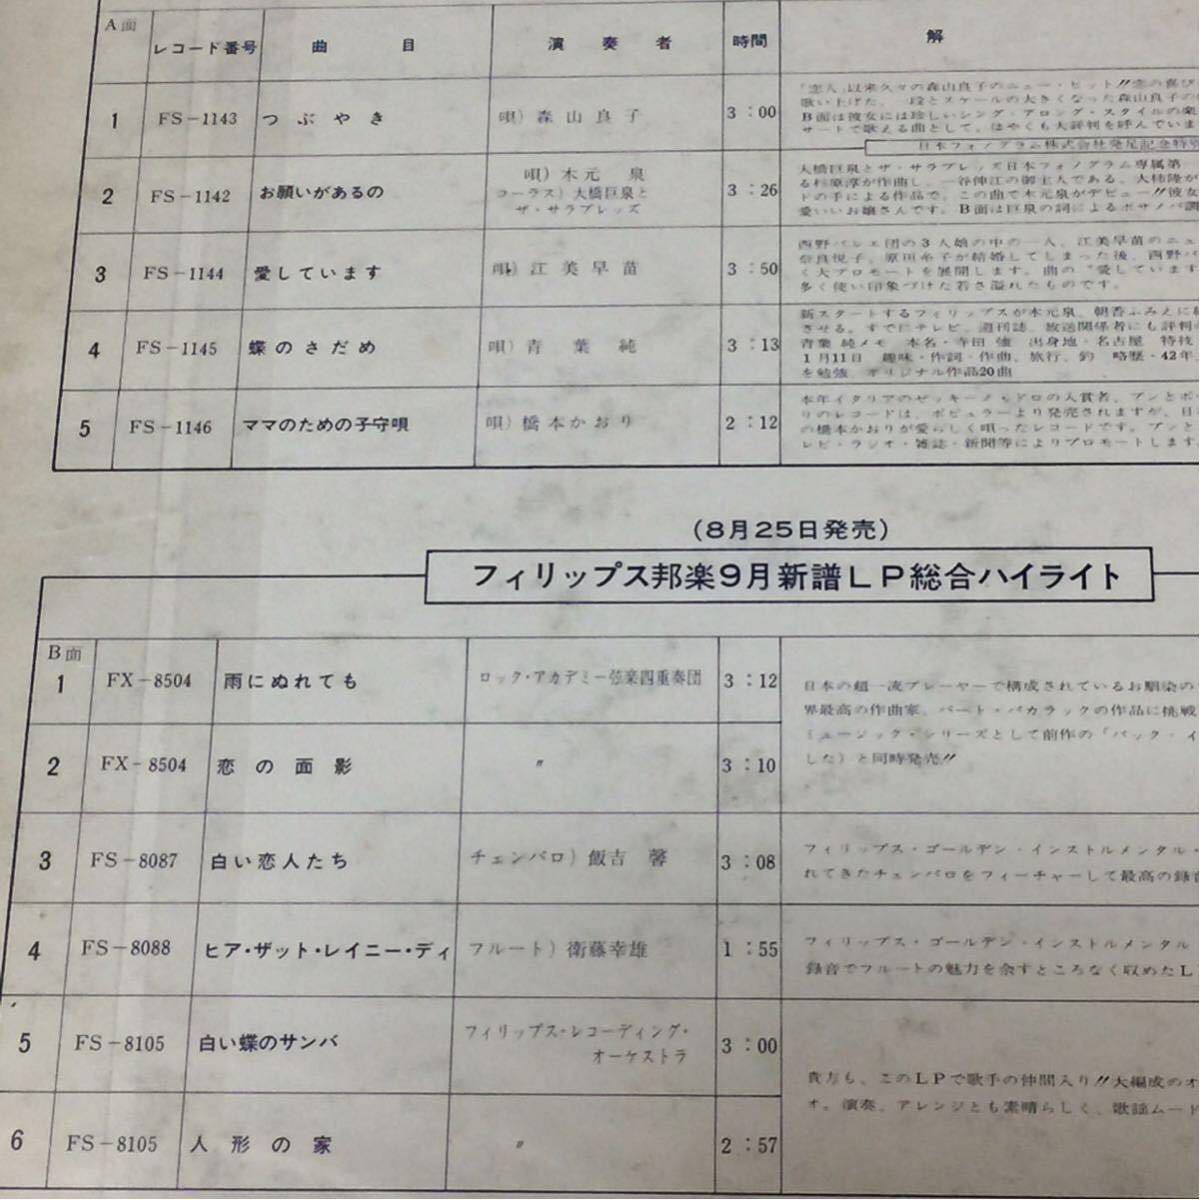 A面
レコード番号 曲目 演奏者 時間 解
1 FS-1143 つぶやき 唄）森山良子 3：00
「恋人」以来久々の森山良子のニュー・ヒット!!恋の喜び
歌い上げた、一段とスケールの大きくなった森山良子の
B面は彼女には珍しいシング・アロング・スタイルの楽
サートで歌える曲として、はやくも大評判を呼んでいま
日本フォノグラム株式会社発足記念特別
2 FS-1142 お願いがあるの 唄）木元泉 3：26
コーラス）大橋巨泉と
ザ・サラブレッズ
大橋巨泉とザ・サラブレッズ日本フォノグラム専属第一
る杉原淳が作曲し、一谷伸江の御主人である、大柿隆が
ドの手による作品で、この曲で木元泉がデビュー!!彼女
愛いいお嬢さんです。B面は巨泉の詞によるボサノバ調
3 FS-1144 愛しています 唄）江美早苗 3：50
西野バレエ団の3人娘の中の一人、江美早苗のニュ
奈良悦子、原田糸子が結婚してしまった後、西野バ
く大プロモートを展開します。曲の“愛しています
多く使い印象づけた若さ溢れたものです。
4 FS-1145 蝶のさだめ 唄）青葉純 3：13
新スタートするフィリップスが木元泉、朝香ふみえに
させる。すでにテレビ、週刊誌、放送関係者にも評判
青葉純メモ 本名・寺田 強 出身地・名古屋 特技
1月11日 趣味・作詞・作曲、旅行、釣 略歴・42年、
を勉強 オリジナル作品20曲
5 FS-1146 ママのための子守唄 唄）橋本かおり 2：12
本年イタリアのゼッキーノ・ドロの入賞者、プンとポ
リのレコードは、ポピュラーより発売されますが、日
の橋本かおりが愛らしく唄ったレコードです。プンと
レビ・ラジオ・雑誌・新聞等によりプロモートします。
（8月25日発売）
フィリップス邦楽9月新譜LP総合ハイライト
B面
1 FX-8504 雨にぬれても ロック・アカデミー弦楽四重奏団 3：12
2 FX-8504 恋の面影 〃 3：10
日本の超一流プレーヤーで構成されているお馴染の
界最高の作曲家、バート・バカラックの作品に挑戦
ミュージック・シリーズとして前作の「バック・イ
した）と同時発売!!
3 FS-8087 白い恋人たち チェンバロ）飯吉馨 3：08
フィリップス・ゴールデン・インストルメンタル・
れてきたチェンバロをフィーチャーして最高の録音
4 FS-8088 ヒア・ザット・レイニー・ディ フルート）衛藤幸雄 1：55
フィリップス・ゴールデン・インストルメンタル
録音でフルートの魅力を余すところなく収めたL
5 FS-8105 白い蝶のサンバ フィリップス・レコーディング・ 3：00
オーケストラ
6 FS-8105 人形の家 〃 2：57
貴方も、このLPで歌手の仲間入り!!大編成のオ
オ。演奏、アレンジとも素晴らしく、歌謡ムード